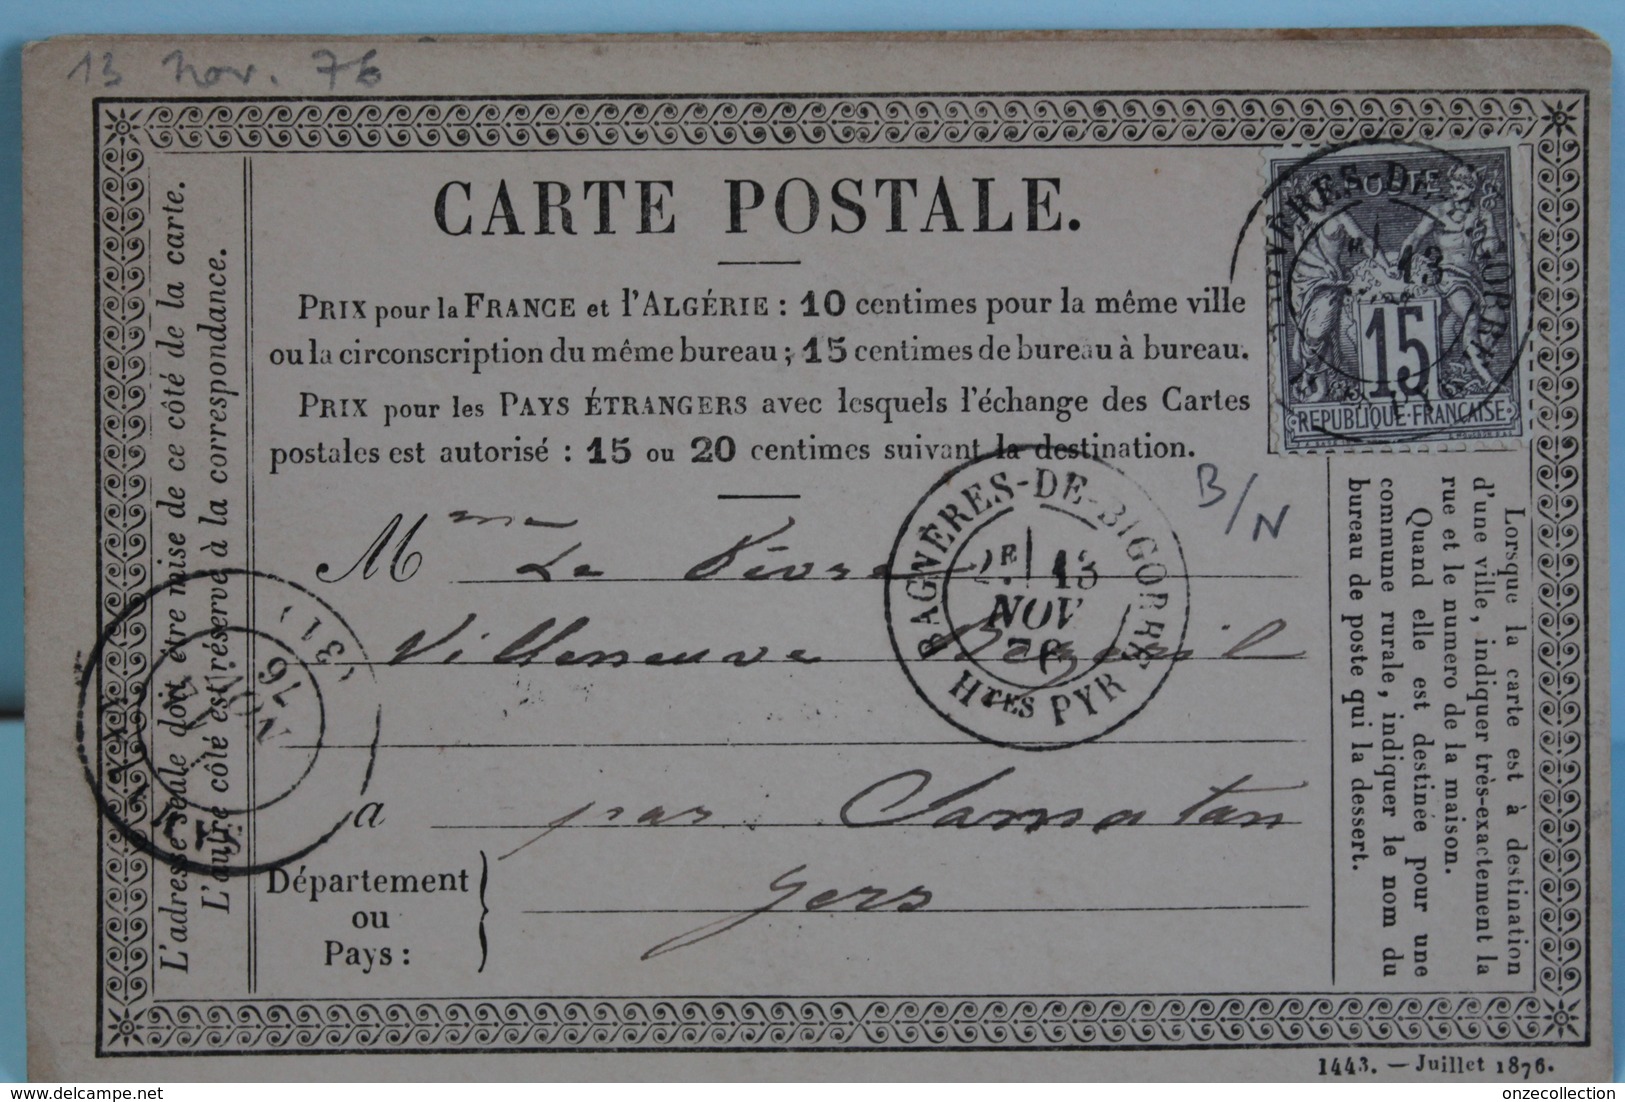 13 nov. 76
CARTE POSTALE.
PRIX pour la FRANCE et l'ALGÉRIE : 10 centimes pour la même ville
ou la circonscription du même bureau ; 15 centimes de bureau à bureau.
PRIX pour les PAYS ÉTRANGERS avec lesquels l'échange des Cartes
postales est autorisé : 15 ou 20 centimes suivant la destination.
L'adresse seule doit être mise de ce côté de la carte.
L'autre côté est réservé à la correspondance.
POSTE
15
REPUBLIQUE FRANÇAISE
13
B/N
BAGNÈRES-DE-BIGORRE
2E 13
NOV
76
HTES PYR
Mme Le Fèvre
Villeneuve
a par Samatan
Département
ou
Pays :
Gers
(31)
NOV
76
Lorsque la carte est à destination
d'une ville, indiquer très-exactement la
rue et le numero de la maison.
Quand elle est destinée pour une
commune rurale, indiquer le nom du
bureau de poste qui la dessert.
1443. — Juillet 1876.
onzecollection